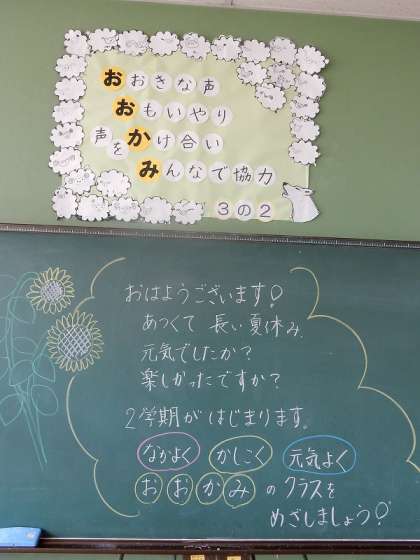 おおきな声
おもいやり
声をかけ合い
みんなで協力
3の2
おはようございます!
あつくて 長い夏休み
元気でしたか?
楽しかったですか?
2学期が はじまります。
なかよく かしこく 元気よく
おおかみ の クラスを
めざしましょう!